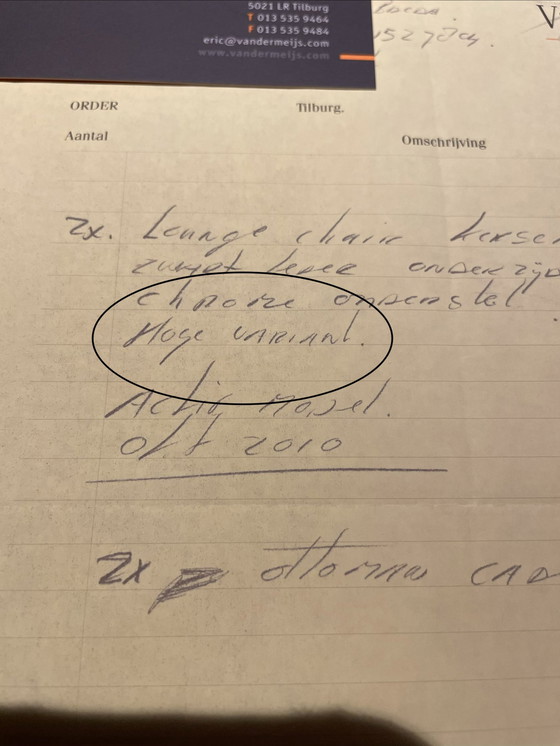 5021 LR Tilburg
T 013 535 9464
F 013 535 9484
eric@vandermeijs.com
www.vandermeijs.com
V
ORDER Tilburg.
Aantal Omschrijving
2x. Lounge chair kersen
zwart leder onderzijd
chrome onderstel
Hoge variant.
Actie model.
Oft 2010
2x ottoman CAD